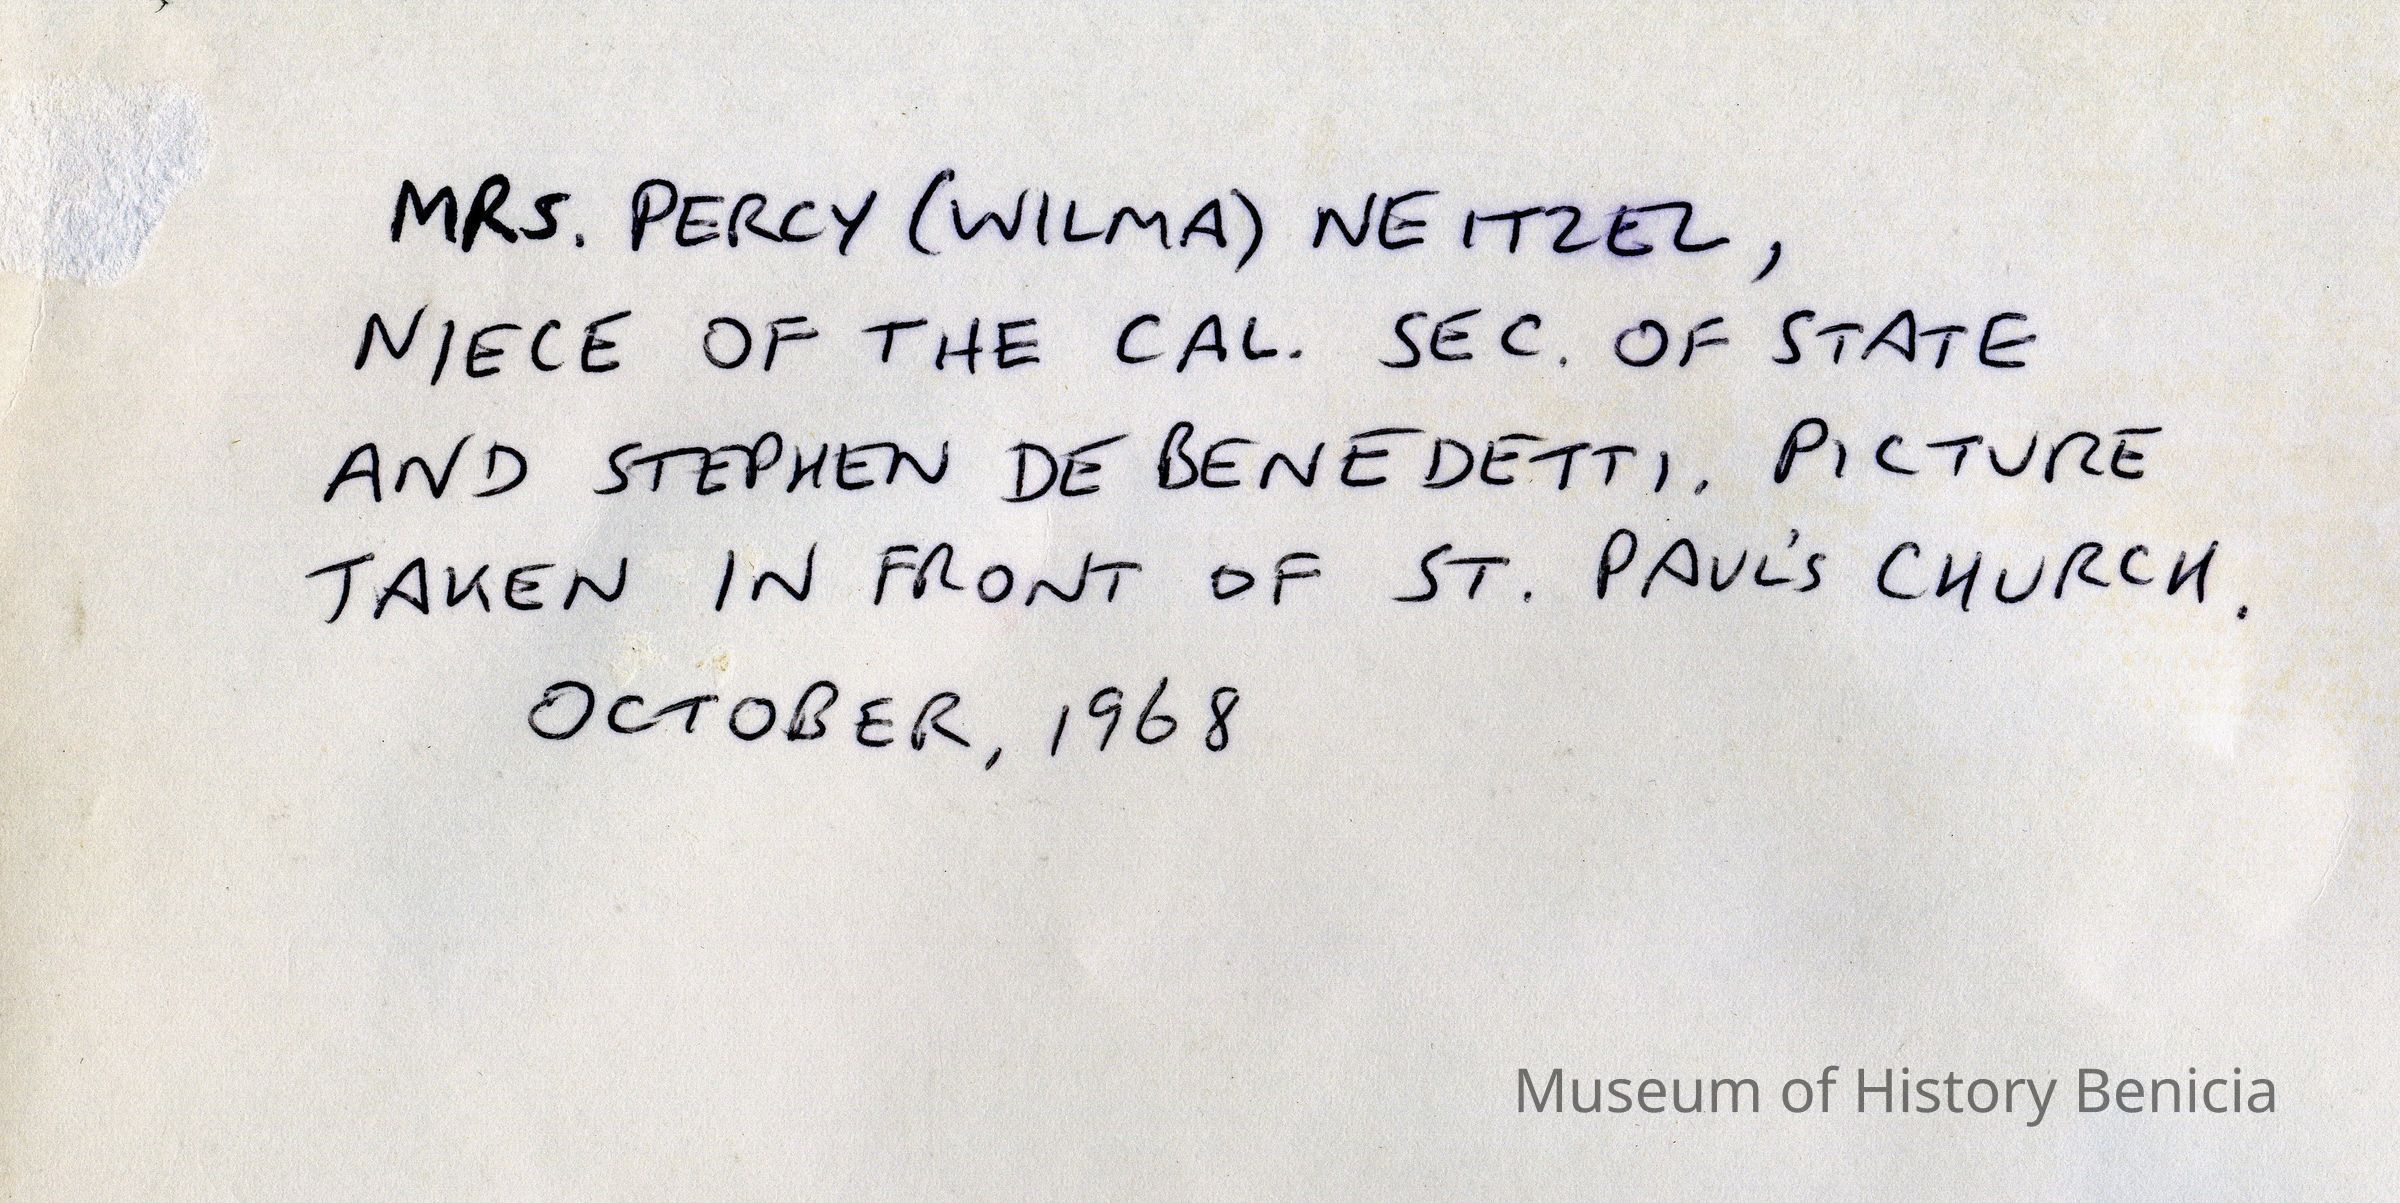 MRS. PERCY (WILMA) NEITZEL,
NIECE OF THE CAL. SEC. OF STATE
AND STEPHEN DE BENEDETTI. PICTURE
TAKEN IN FRONT OF ST. PAUL'S CHURCH.
OCTOBER, 1968
Museum of History Benicia